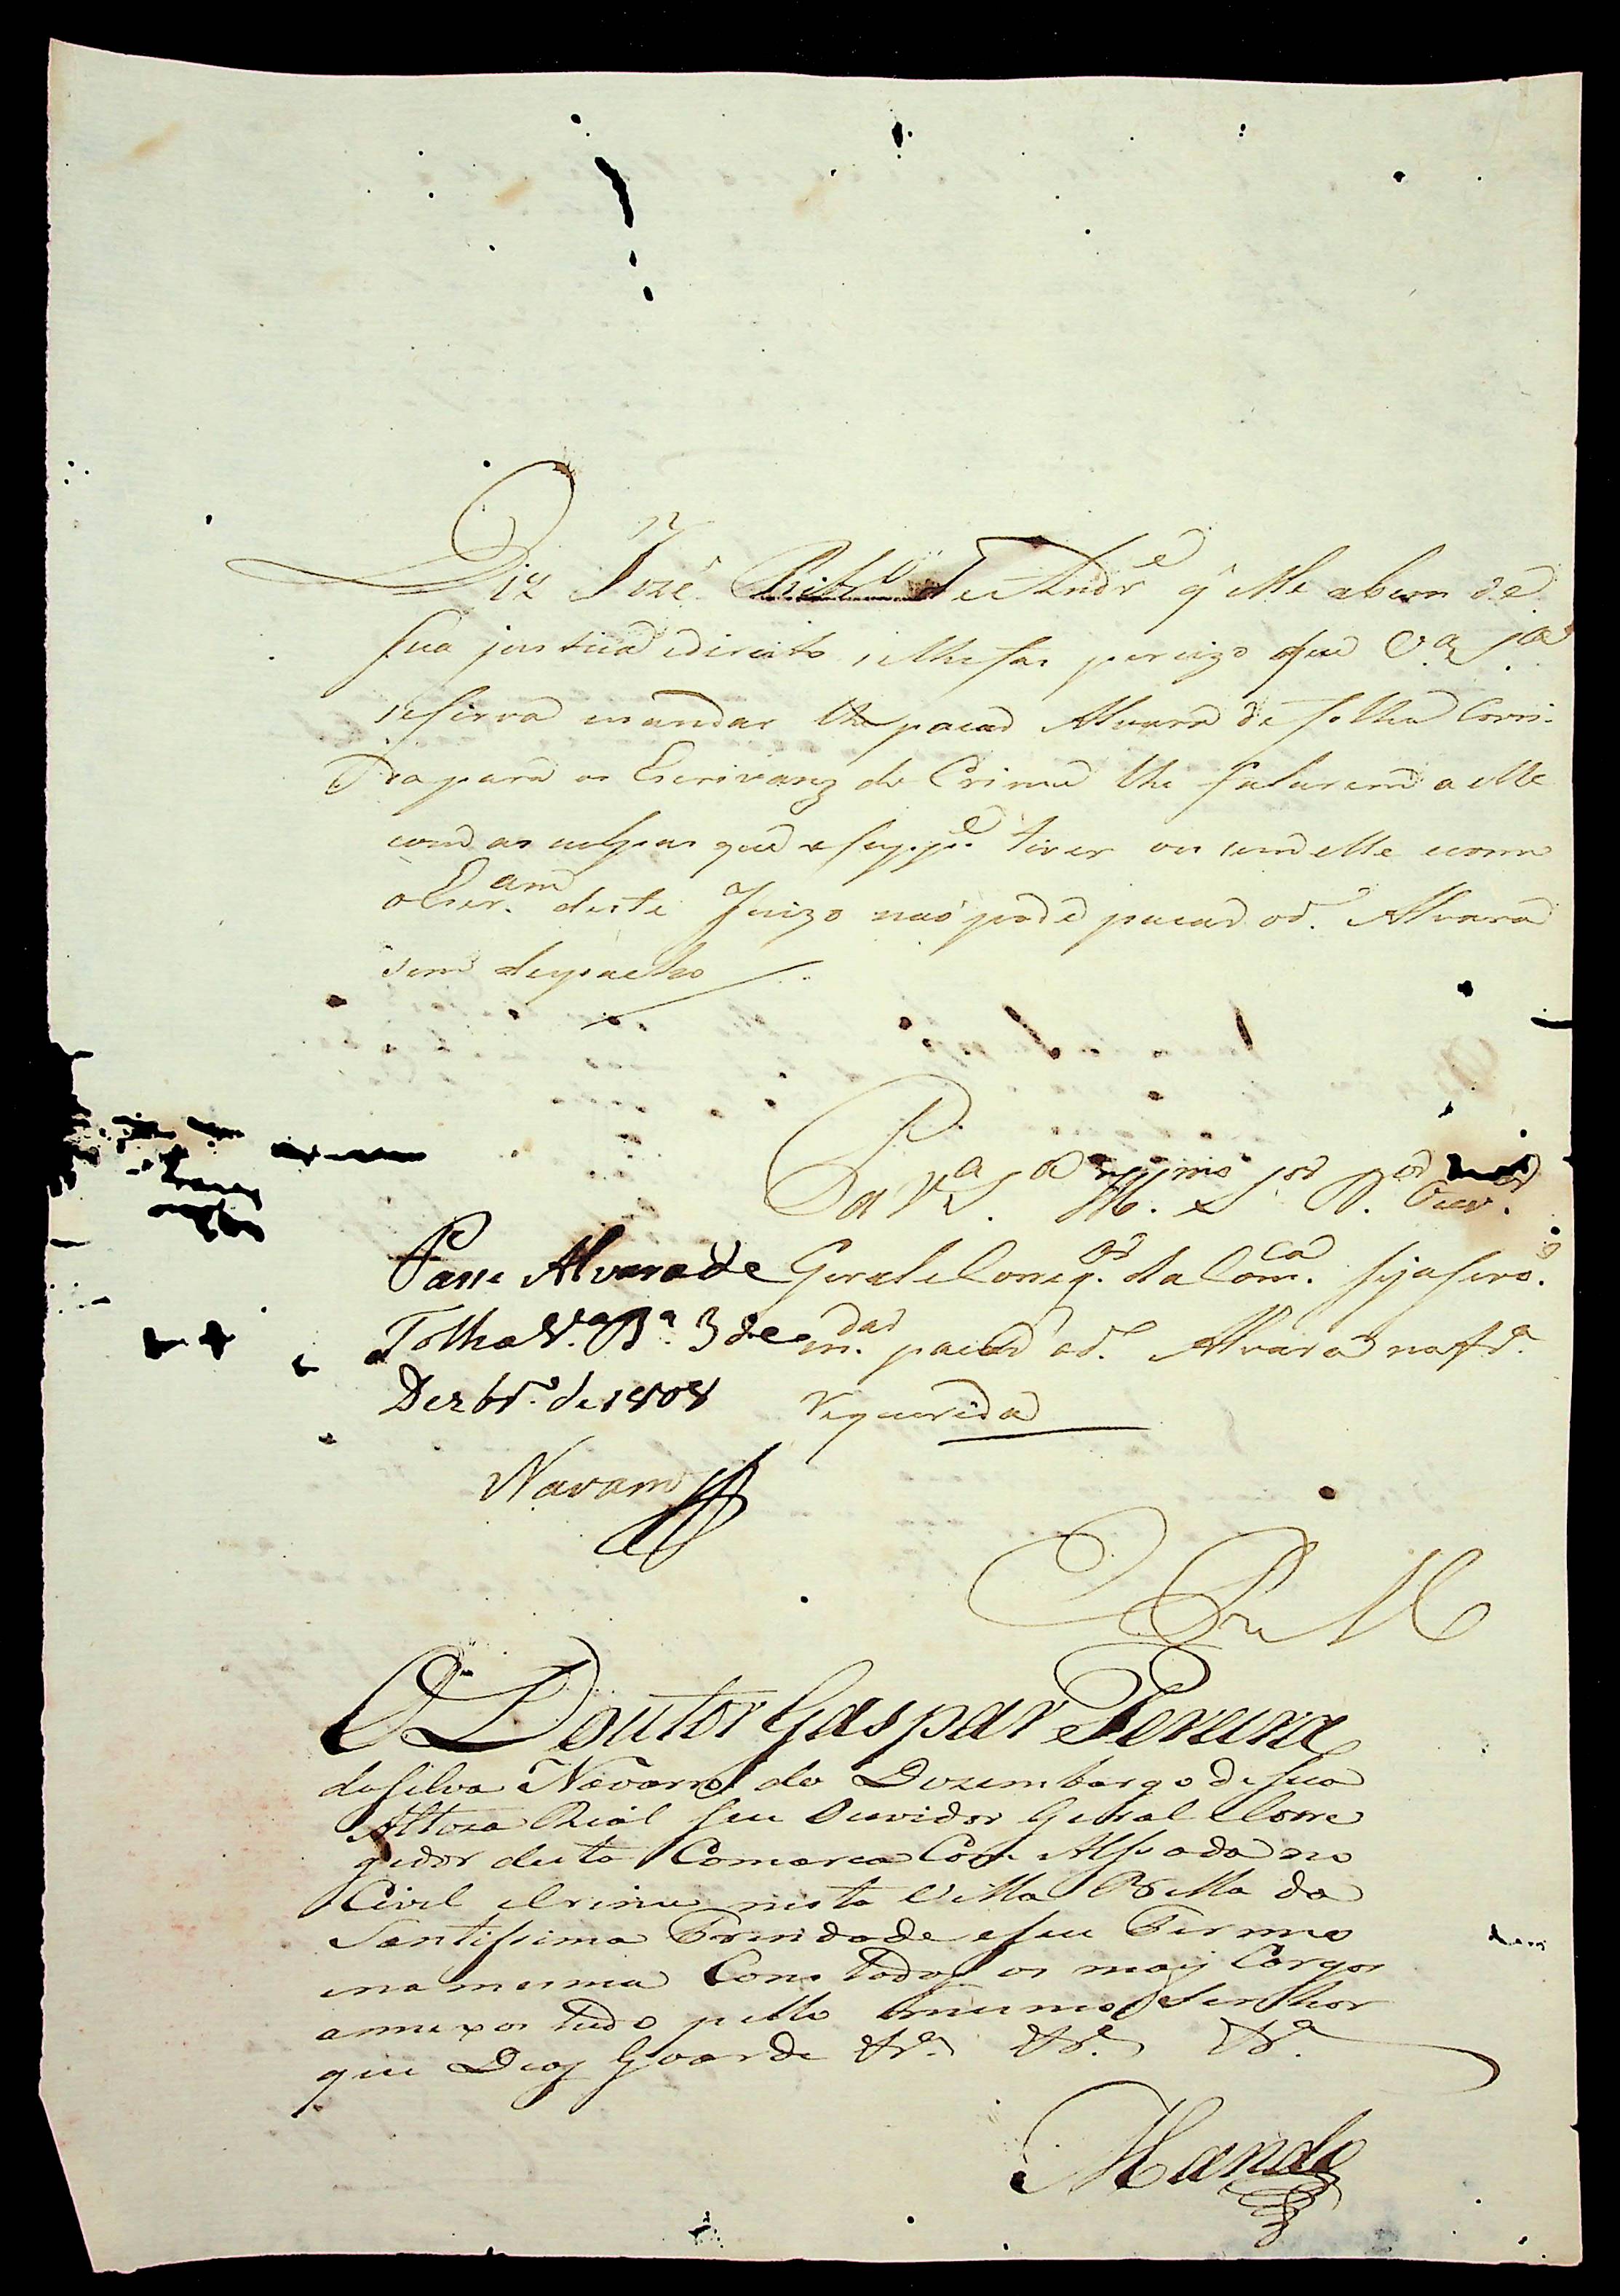 Diz Jozé Ribr.o de Andr.e q' elle abem de
sua justica edireito, selhe fas percizo que V.a S.a
sesirva mandar lhe pacar Alvara de folha Corri-
da para os Escrivanz do Crime lhe falarem a elle
com as culpas que o supp.e tiver ou sem elle e como
o Escr.am deste Juizo naó pode pacar o d.o Alvara
sem despacho
P.
Pa V.a S.a Ill.mo Sr. D.or Ouv.or
Geral e Correg.or da Com.ca seja servo.
m.dar pacar o d.o Alvara na fr.a
requerida
Passe Alvara de
Folha V.a B.a 3 de
Dezbr.o de 1808
Navarro
E R M
O Doutor Gaspar Pereira
da Silva Navarro do Dezembargo de sua
Alteza Rial seu Ouvidor Geral e Corre
gedor desta Comarca Com Alsada no
Civil e Crime nesta Villa Bella da
Santissima Trindade e seu Termo
e na mesma Com todos os maiz Cargos
annexos tudo pello mesmo Senhor
que Deoz Guarde &.a &.a &.a
Mando